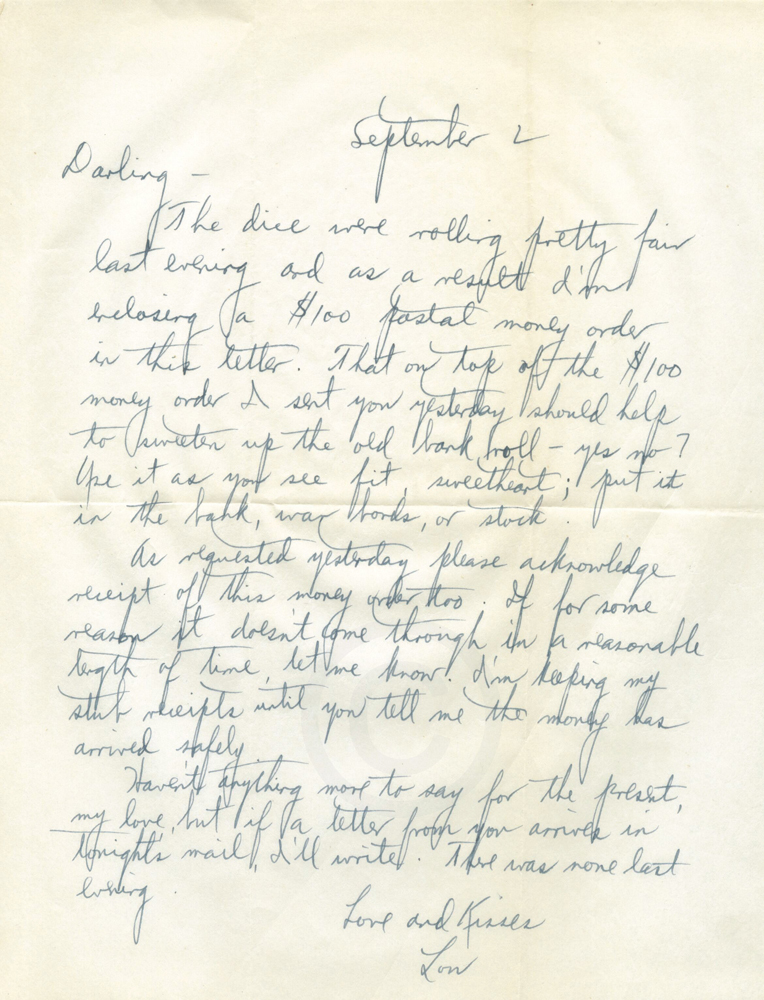 September 2
Darling -
The dice were rolling pretty fair
last evening and as a result I'm
enclosing a $100 postal money order
in this letter. That on top of the $100
money order I sent you yesterday should help
to sweeten up the old bank roll - yes no?
Use it as you see fit, sweetheart; put it
in the bank, war bonds, or stock.
As requested yesterday please acknowledge
receipt of this money order too. If for some
reason it doesn't come through in a reasonable
length of time, let me know. I'm keeping my
stub receipts until you tell me the money has
arrived safely
Haven't anything more to say for the present,
my love, but if a letter from you arrives in
tonight's mail, I'll write. There was none last
evening.
Love and Kisses
Lou